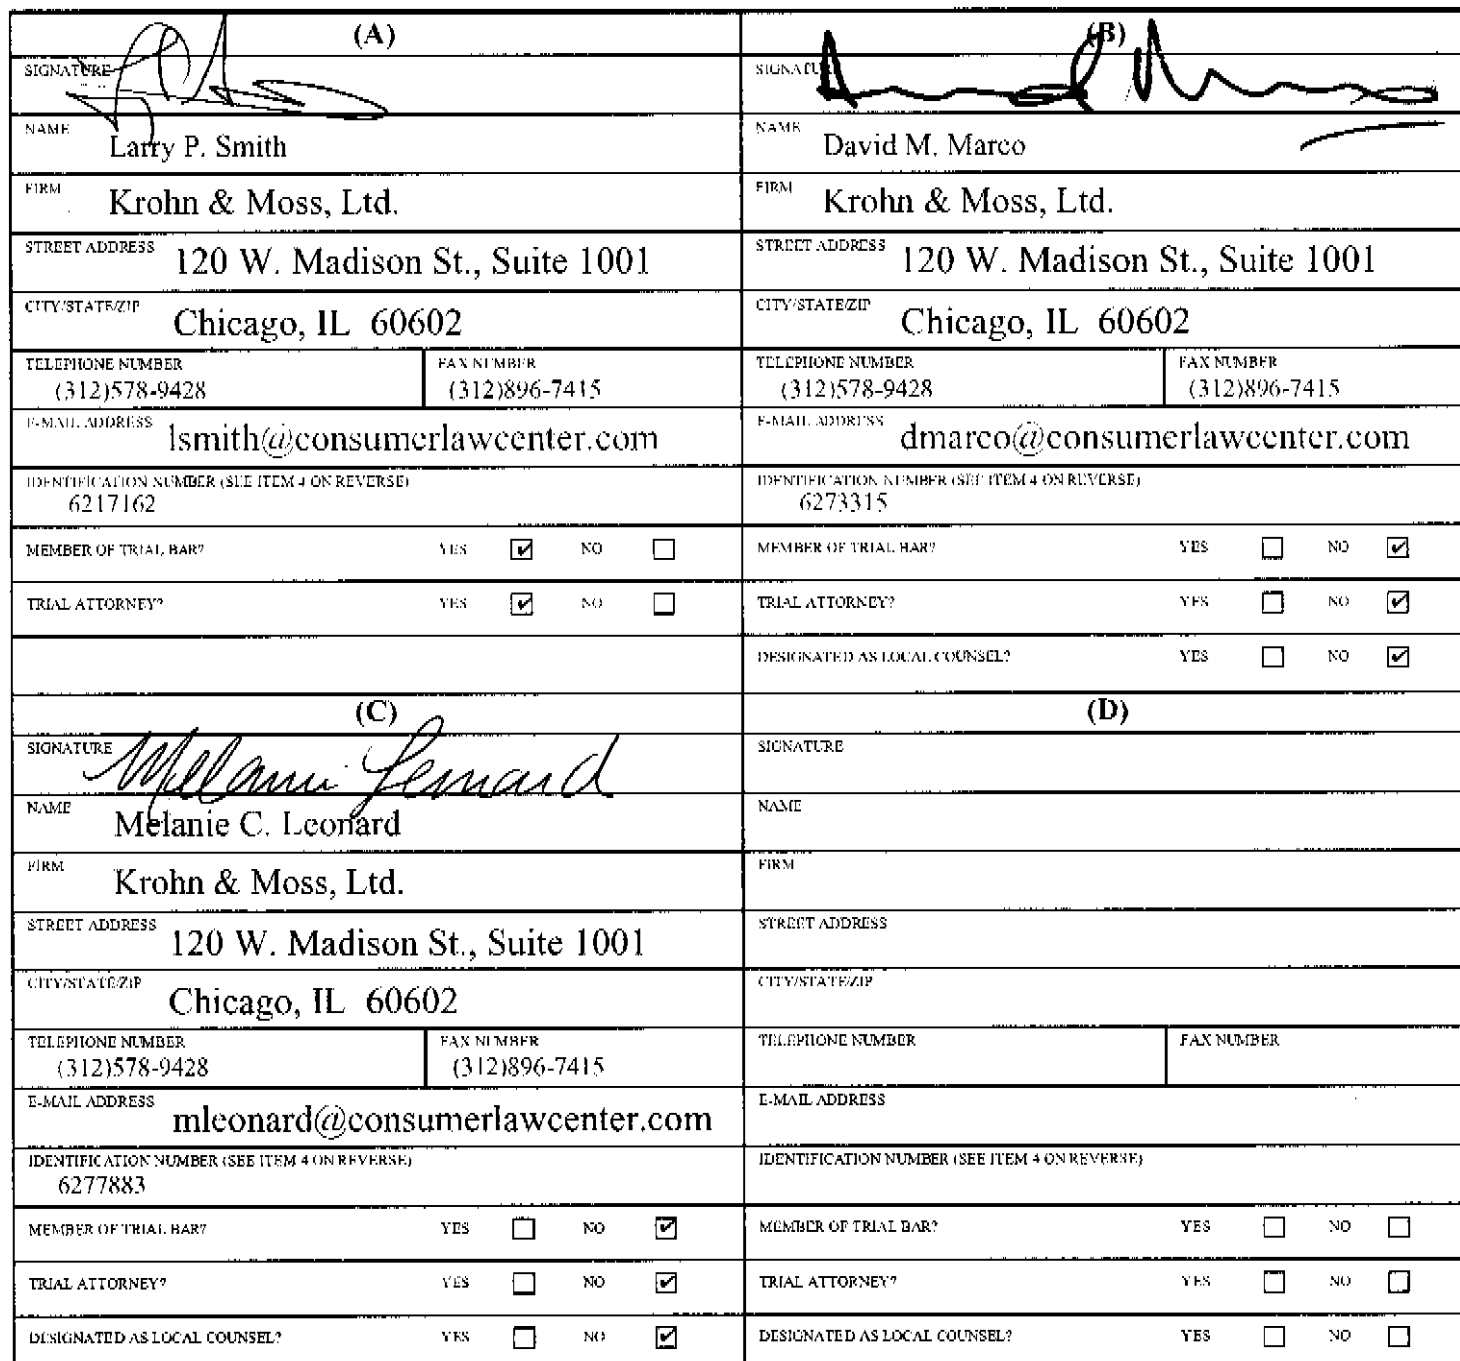 (A)
SIGNATURE
NAME
Larry P. Smith
FIRM
Krohn & Moss, Ltd.
STREET ADDRESS
120 W. Madison St., Suite 1001
CITY/STATE/ZIP
Chicago, IL 60602
TELEPHONE NUMBER
(312)578-9428
FAX NUMBER
(312)896-7415
E-MAIL ADDRESS
lsmith@consumerlawcenter.com
IDENTIFICATION NUMBER (SEE ITEM 4 ON REVERSE)
6217162
MEMBER OF TRIAL BAR? YES ☑ NO ☐
TRIAL ATTORNEY? YES ☑ NO ☐
(B)
SIGNATURE
NAME
David M. Marco
FIRM
Krohn & Moss, Ltd.
STREET ADDRESS
120 W. Madison St., Suite 1001
CITY/STATE/ZIP
Chicago, IL 60602
TELEPHONE NUMBER
(312)578-9428
FAX NUMBER
(312)896-7415
E-MAIL ADDRESS
dmarco@consumerlawcenter.com
IDENTIFICATION NUMBER (SEE ITEM 4 ON REVERSE)
6273315
MEMBER OF TRIAL BAR? YES ☐ NO ☑
TRIAL ATTORNEY? YES ☐ NO ☑
DESIGNATED AS LOCAL COUNSEL? YES ☐ NO ☑
(C)
SIGNATURE
Melanie Leonard
NAME
Melanie C. Leonard
FIRM
Krohn & Moss, Ltd.
STREET ADDRESS
120 W. Madison St., Suite 1001
CITY/STATE/ZIP
Chicago, IL 60602
TELEPHONE NUMBER
(312)578-9428
FAX NUMBER
(312)896-7415
E-MAIL ADDRESS
mleonard@consumerlawcenter.com
IDENTIFICATION NUMBER (SEE ITEM 4 ON REVERSE)
6277883
MEMBER OF TRIAL BAR? YES ☐ NO ☑
TRIAL ATTORNEY? YES ☐ NO ☑
DESIGNATED AS LOCAL COUNSEL? YES ☐ NO ☑
(D)
SIGNATURE
NAME
FIRM
STREET ADDRESS
CITY/STATE/ZIP
TELEPHONE NUMBER
FAX NUMBER
E-MAIL ADDRESS
IDENTIFICATION NUMBER (SEE ITEM 4 ON REVERSE)
MEMBER OF TRIAL BAR? YES ☐ NO ☐
TRIAL ATTORNEY? YES ☐ NO ☐
DESIGNATED AS LOCAL COUNSEL? YES ☐ NO ☐